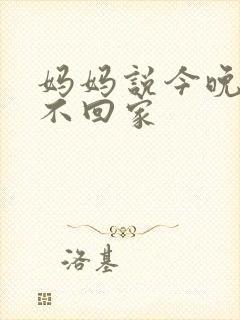 妈妈説今晚
不回家
洛基